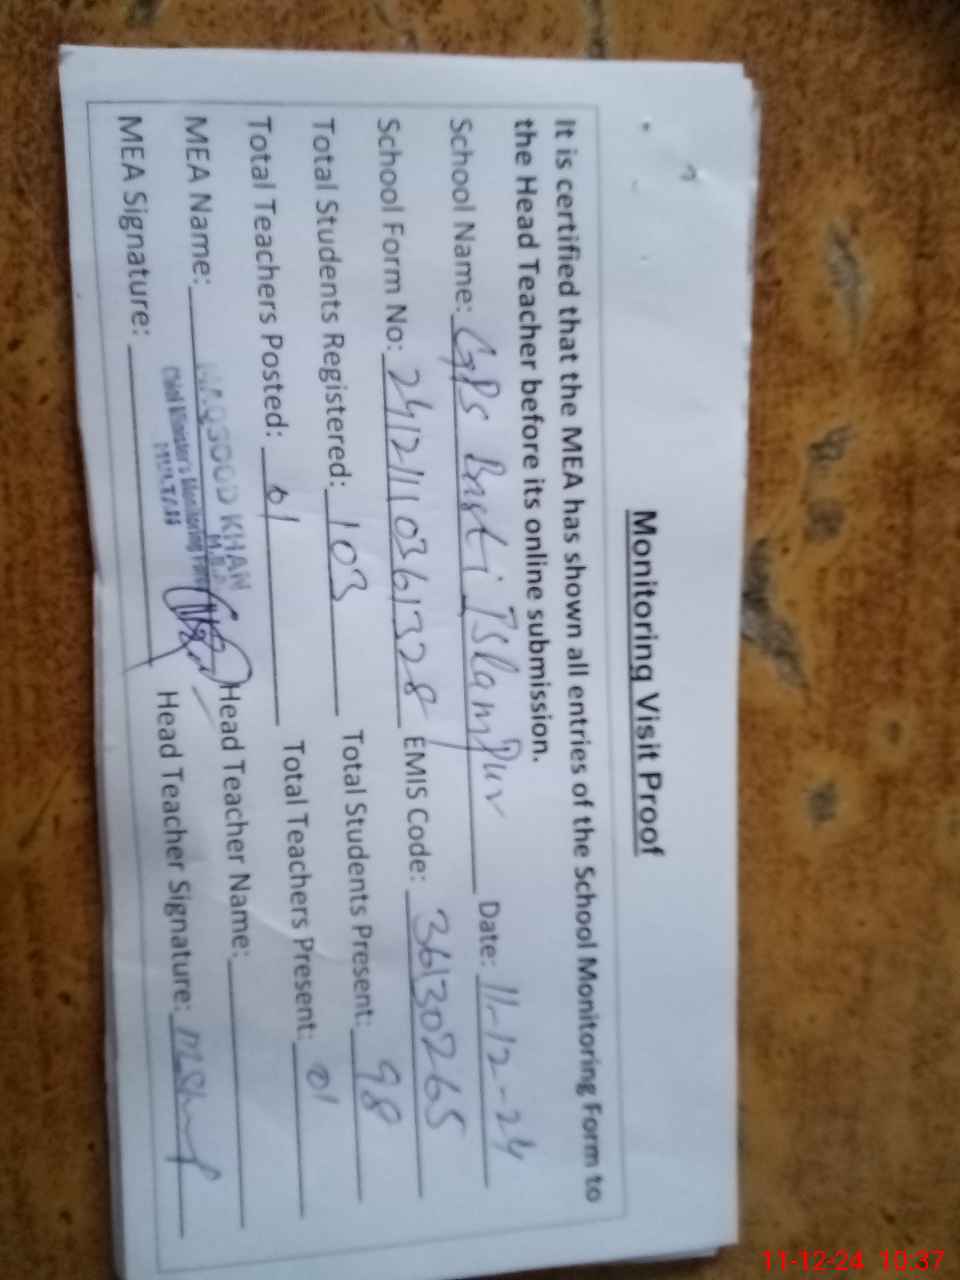 Monitoring Visit Proof
It is certified that the MEA has shown all entries of the School Monitoring Form to
the Head Teacher before its online submission.
School Name: GPS Basti Islam Pur Date: 11-12-24
School Form No: 2412110361328 EMIS Code: 36130265
Total Students Registered: 103 Total Students Present: 98
Total Teachers Posted: 01 Total Teachers Present: 01
MEA Name: MAQSOOD KHAN Head Teacher Name:
M.E.A
Chief Minister's Monitoring Force
MULTAN
MEA Signature: Head Teacher Signature:
11-12-24 10:37